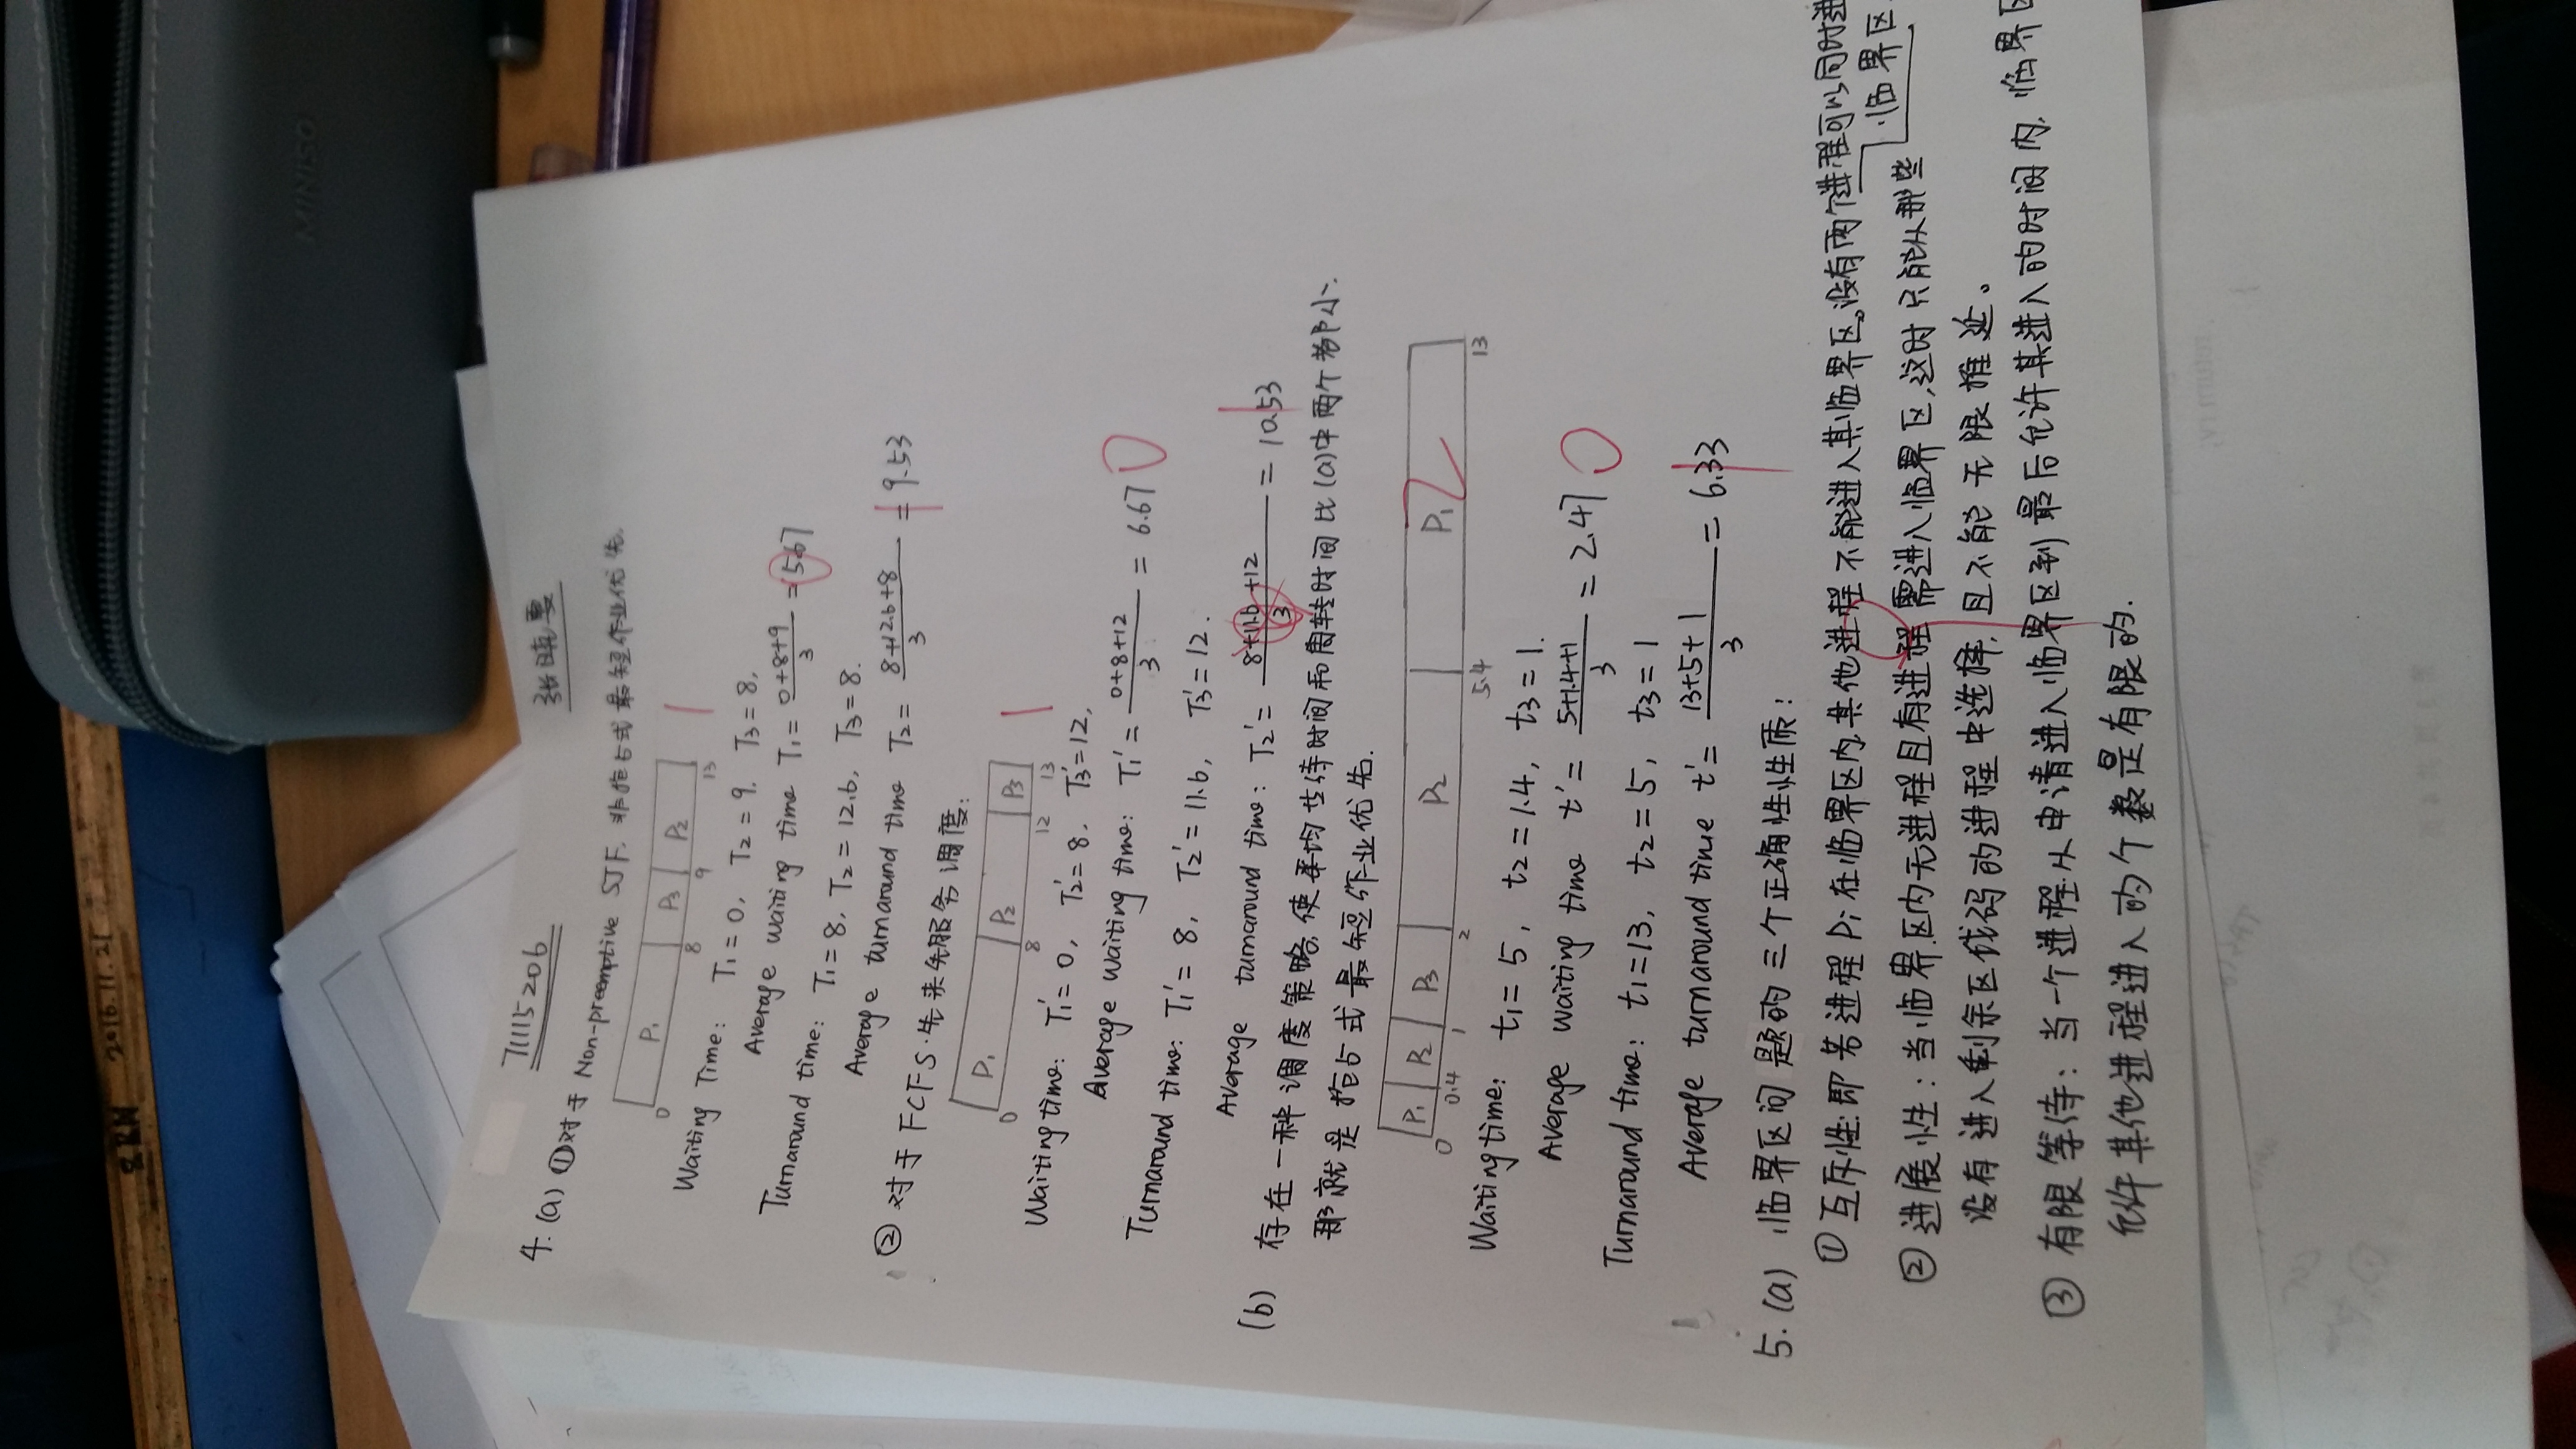 MINISO
2016.11.21
71115206 张晴雯
4. (a) ①对于 Non-preemptive SJF. 非抢占式最短作业优先.
P1 P3 P2
0 8 9 13
Waiting Time: T1=0, T2=9. T3=8,
Average waiting time T1= (0+8+9)/3 = 5.67
Turnaround time: T1=8, T2=12.6, T3=8.
Average turnaround time T2= (8+12.6+8)/3 = 9.53
② 对于 FCFS.先来先服务调度:
P1 P2 P3
0 8 12 13
Waiting time: T1'=0, T2'=8, T3'=12,
Average waiting time: T1'= (0+8+12)/3 = 6.67
Turnaround time: T1'=8, T2'=11.6, T3'=12.
Average turnaround time: T2'= (8+11.6+12)/3 = 10.53
(b) 存在一种调度策略,使平均等待时间和周转时间比(a)中两个都小.
那就是抢占式最短作业优先.
P1 P2 P3 P2 P1
0 0.4 1 2 5.4 13
Waiting time: t1=5, t2=1.4, t3=1.
Average waiting time t'= (5+1.4+1)/3 = 2.47
Turnaround time: t1=13, t2=5, t3=1
Average turnaround time t'= (13+5+1)/3 = 6.33
5. (a) 临界区问题的三个正确性性质:
① 互斥性:即若进程Pi在临界区内,其他进程不能进入其临界区。没有两个进程可以同时进
临界区.
② 进展性:当临界区内无进程且有进程需进入临界区,这时只能从那些
没有进入剩余区代码的进程中选择,且不能无限推延。
③ 有限等待:当一个进程从申请进入临界区到最后允许其进入的时间内,临界区
允许其他进程进入的个数是有限的.